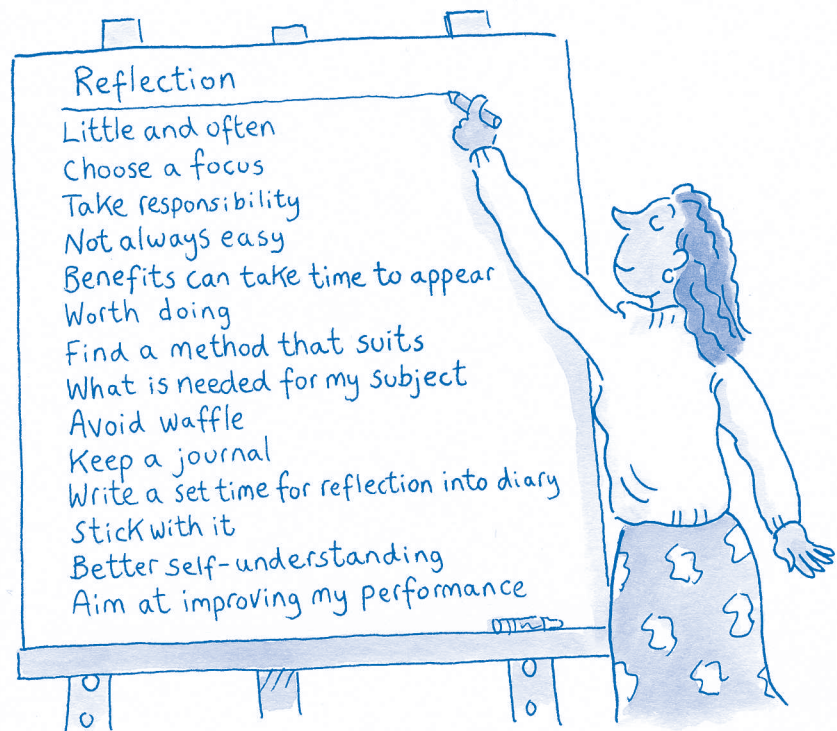 Reflection
Little and often
Choose a focus
Take responsibility
Not always easy
Benefits can take time to appear
Worth doing
Find a method that suits
What is needed for my subject
Avoid waffle
Keep a journal
Write a set time for reflection into diary
Stick with it
Better self-understanding
Aim at improving my performance